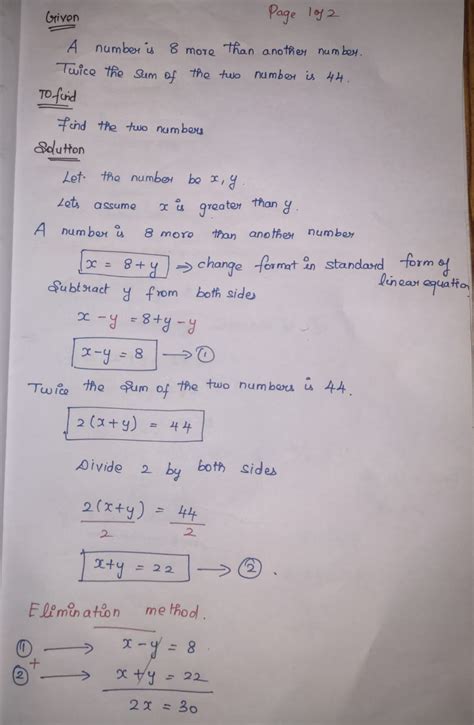 Given
Page 1 of 2
A number is 8 more than another number.
Twice the sum of the two number is 44.
To find
Find the two numbers
Solution
Let the number be x, y.
Lets assume x is greater than y.
A number is 8 more than another number
x = 8+y ⇒ change format in standard form of
linear equation
Subtract y from both sides
x -y = 8+y -y
x-y = 8 → ①
Twice the sum of the two numbers is 44.
2(x+y) = 44
Divide 2 by both sides
2(x+y) = 44
2 2
x+y = 22 → ②.
Elimination method.
① → x-y = 8
+
② → x+y = 22
2x = 30